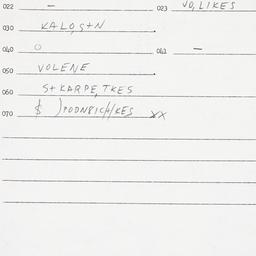 022 - 023 VO, LIKES
030 KALO, S+N .
040 O 041 -
050 VOLENE .
060 S+KARPE, TKES
070 $ )PODNBICH/KES xx